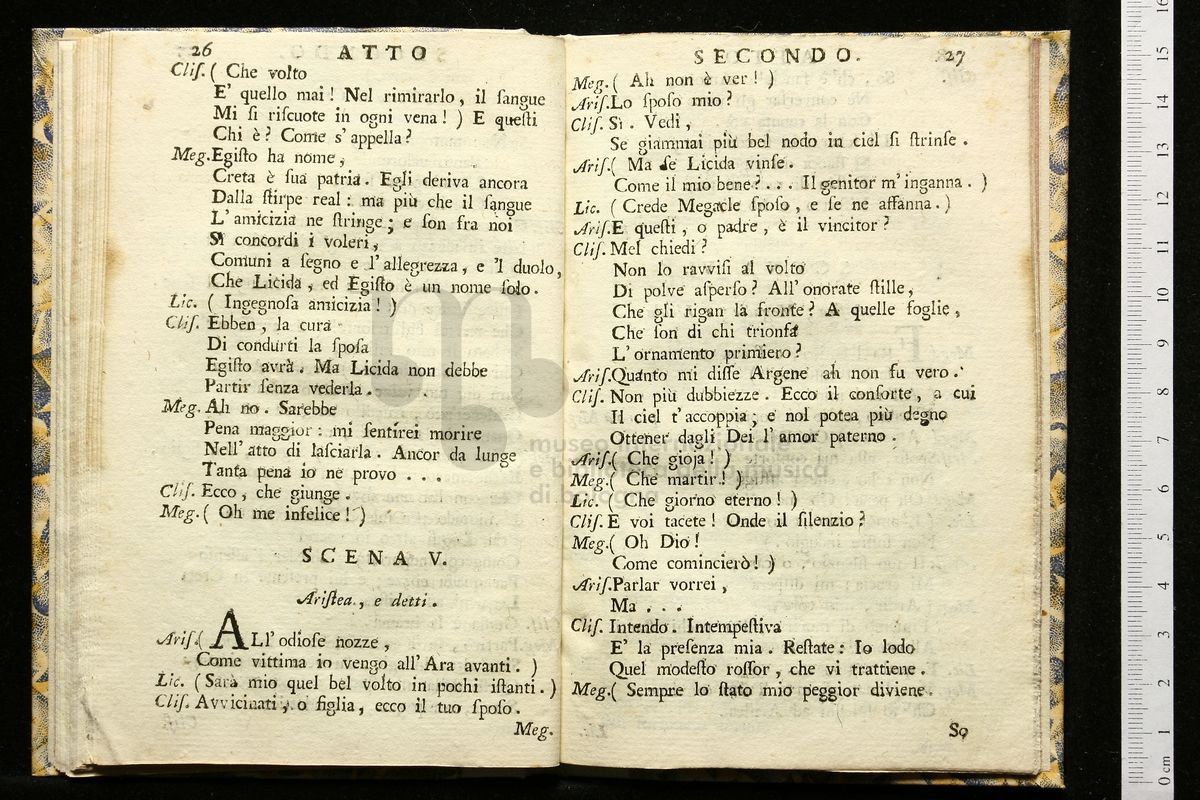 26 ATTO
Cliſ. ( Che volto
E' quello mai! Nel rimirarlo, il ſangue
Mi ſi riſcuote in ogni vena! ) E queſti
Chi è? Come s'appella?
Meg. Egiſto ha nome,
Creta è ſua patria. Egli deriva ancora
Dalla ſtirpe real: ma più che il ſangue
L'amicizia ne ſtringe; e ſon fra noi
Sì concordi i voleri,
Comuni a ſegno e l'allegrezza, e 'l duolo,
Che Licida, ed Egiſto è un nome ſolo.
Lic. ( Ingegnoſa amicizia! )
Cliſ. Ebben, la cura
Di condurti la ſpoſa
Egiſto avrà. Ma Licida non debbe
Partir ſenza vederla.
Meg. Ah no. Sarebbe
Pena maggior: mi ſentirei morire
Nell'atto di laſciarla. Ancor da lunge
Tanta pena io ne provo . . .
Cliſ. Ecco, che giunge.
Meg. ( Oh me infelice! )
SCENA V.
Ariſtea, e detti.
Ariſ. ( ALl'odioſe nozze,
Come vittima io vengo all'Ara avanti. )
Lic. ( Sarà mio quel bel volto in pochi iſtanti. )
Cliſ. Avvicinati, o figlia, ecco il tuo ſpoſo.
Meg.
SECONDO. 27
Meg. ( Ah non è ver! )
Ariſ. Lo ſpoſo mio?
Cliſ. Sì. Vedi,
Se giammai più bel nodo in ciel ſi ſtrinſe.
Ariſ. ( Ma ſe Licida vinſe.
Come il mio bene? . . . Il genitor m'inganna. )
Lic. ( Crede Megacle ſpoſo, e ſe ne affanna. )
Ariſ. E queſti, o padre, è il vincitor?
Cliſ. Mel chiedi?
Non lo ravviſi al volto
Di polve aſperſo? All'onorate ſtille,
Che gli rigan la fronte? A quelle foglie,
Che ſon di chi trionfa
L'ornamento primiero?
Ariſ. Quanto mi diſſe Argene ah non fu vero.
Cliſ. Non più dubbiezze. Ecco il conſorte, a cui
Il ciel t'accoppia; e nol potea più degno
Ottener dagli Dei l'amor paterno.
Ariſ. ( Che gioja! )
Meg. ( Che martir! )
Lic. ( Che giorno eterno! )
Cliſ. E voi tacete! Onde il ſilenzio?
Meg. ( Oh Dio!
Come comincierò! )
Ariſ. Parlar vorrei,
Ma . . .
Cliſ. Intendo. Intempeſtiva
E' la preſenza mia. Reſtate: Io lodo
Quel modeſto roſſor, che vi trattiene.
Meg. ( Sempre lo ſtato mio peggior diviene.
So
museo internazionale
e biblioteca della musica
di bologna
0 cm 1 2 3 4 5 6 7 8 9 10 11 12 13 14 15 16